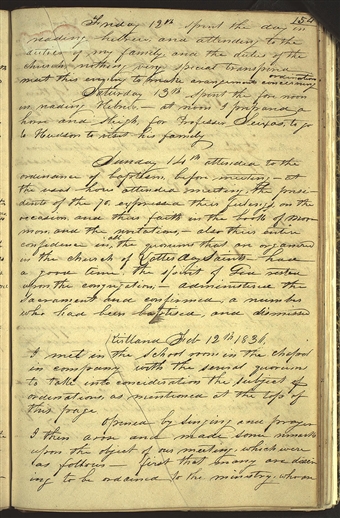 154
Friday 12th spent the day in
reading hebrew, and attending to the
duties of my family, and the duties of the
church, nothing very special transpired
meet this evening to make arrangements concerning
ordinations
Saturday 13th spent the fore noon
in reading Hebrew.— at noon I prepared a
horse and sleigh, for Professor Seixas, to go
to Hudson to visit his family
Sunday 14th attended to the
ordinance of baptism, before meeting— at
the usual hour attended meeting, the presi-
dents of the 70, expressed their feelings, on the
occasion, and their faith in the book of Mor-
mon, and the revelations,— also their entire
confidence in all the quorums that are organized
in the church of Latter day Saints— had
a good time, the spirit of God rested
upon the congregation,— administered the
Sacrament and confirmed, a number
who had been baptised, and dismissed
Kirtland Feb 12th 1836,
I met in the School room in the chapel
in company with the several quorums
to take into consideration the subject of
ordinations, as mentioned at the top of
this page
opened by singing and prayer
I then arose and made some remarks
upon the object of our meeting, which were
as follows— first that many are desir-
ing to be ordained to the ministry, who are